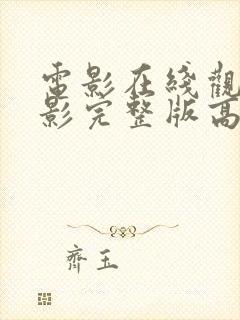 電影在綫觀
影完整版高
齊玉